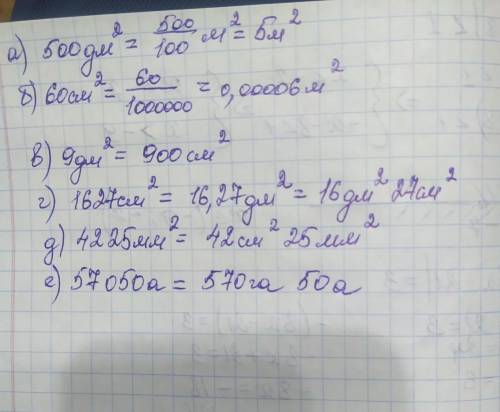 а) 500дм² = 500/100 м² = 5м²
б) 60см² = 60/1000000 = 0,00006м²
в) 9дм² = 900см²
г) 1627см² = 16,27дм² = 16дм² 27см²
д) 4225мм² = 42см² 25мм²
е) 57050а = 570га 50а